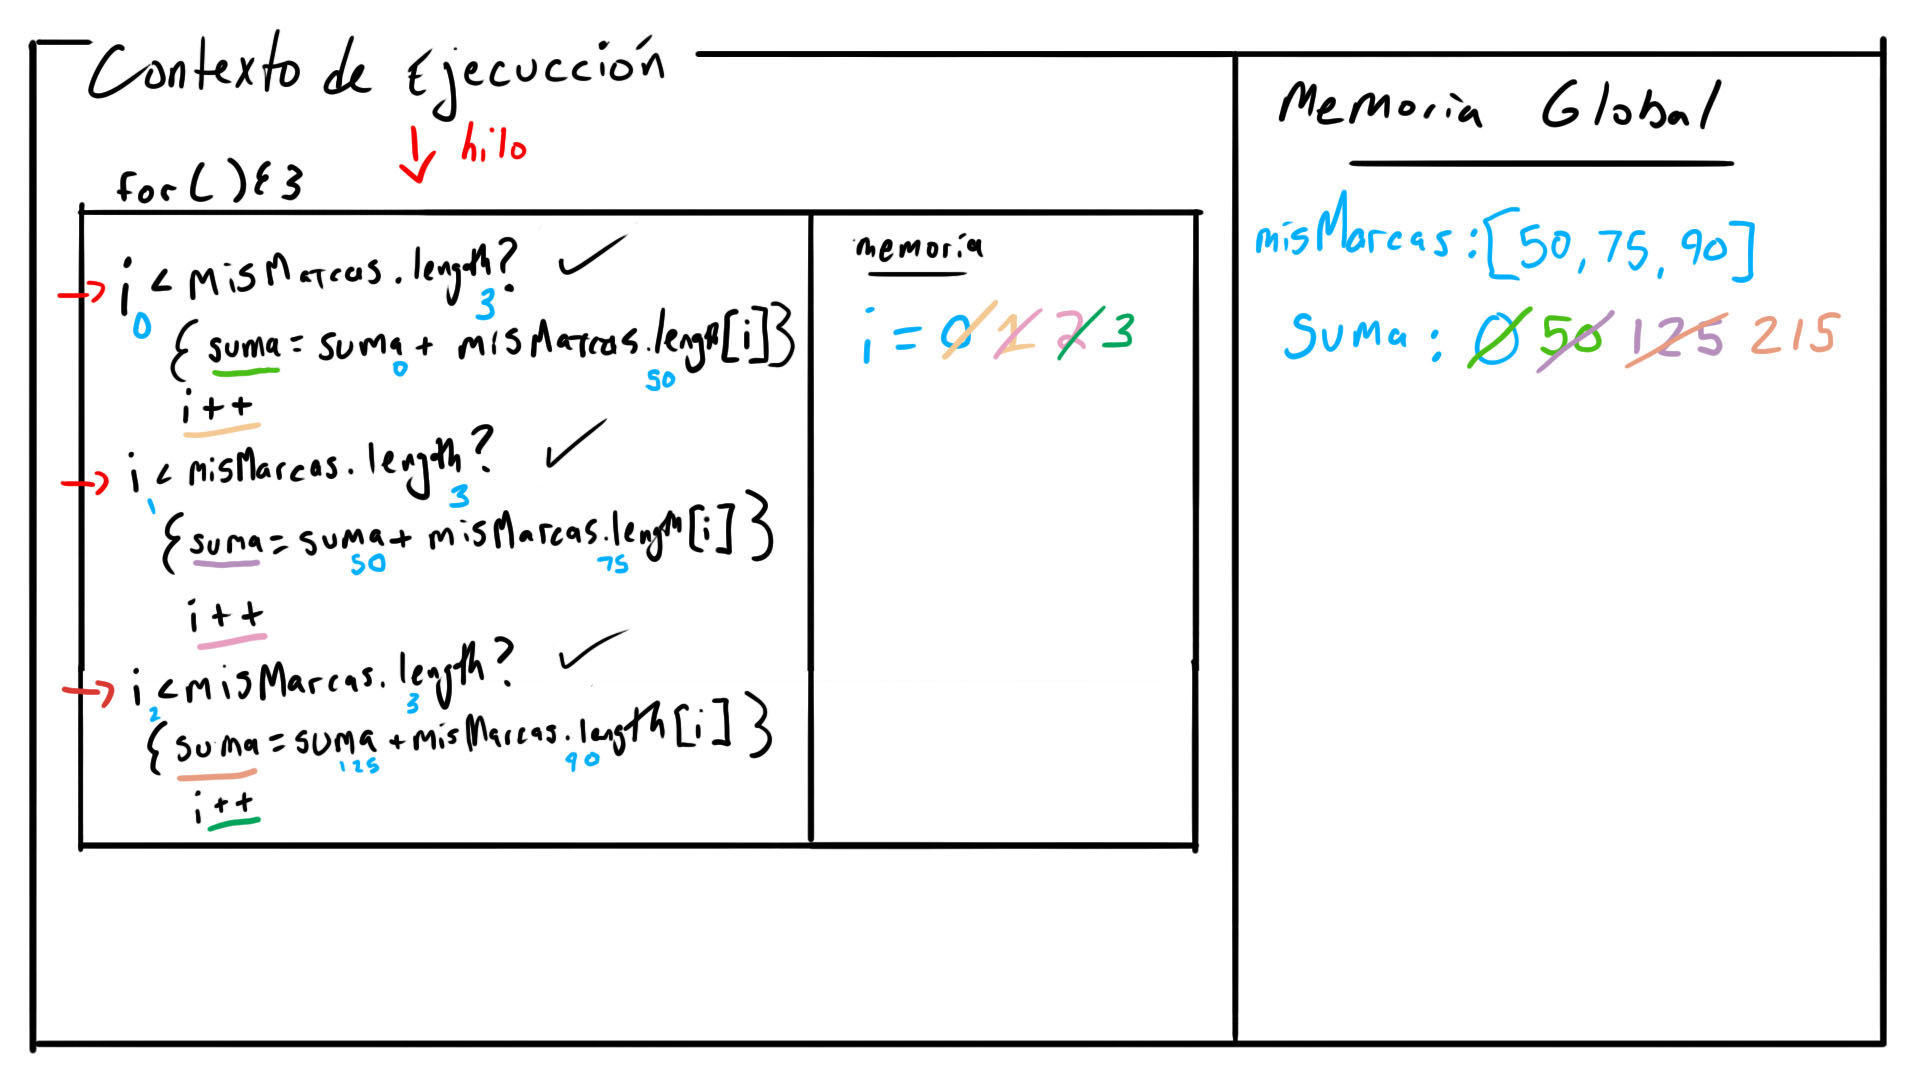 Contexto de Ejecucción
hilo
for ( ) { }
i < misMarcas.length? ✓
0 3
{ suma = suma + misMarcas.length[i] }
0 50
i++
i < misMarcas.length? ✓
1 3
{ suma = suma + misMarcas.lengh[i] }
50 75
i++
i < misMarcas.length? ✓
2 3
{ suma = suma + misMarcas.length[i] }
125 90
i++
memoria
i = 0 1 2 3
Memoria Global
misMarcas: [50, 75, 90]
Suma: 0 50 125 215